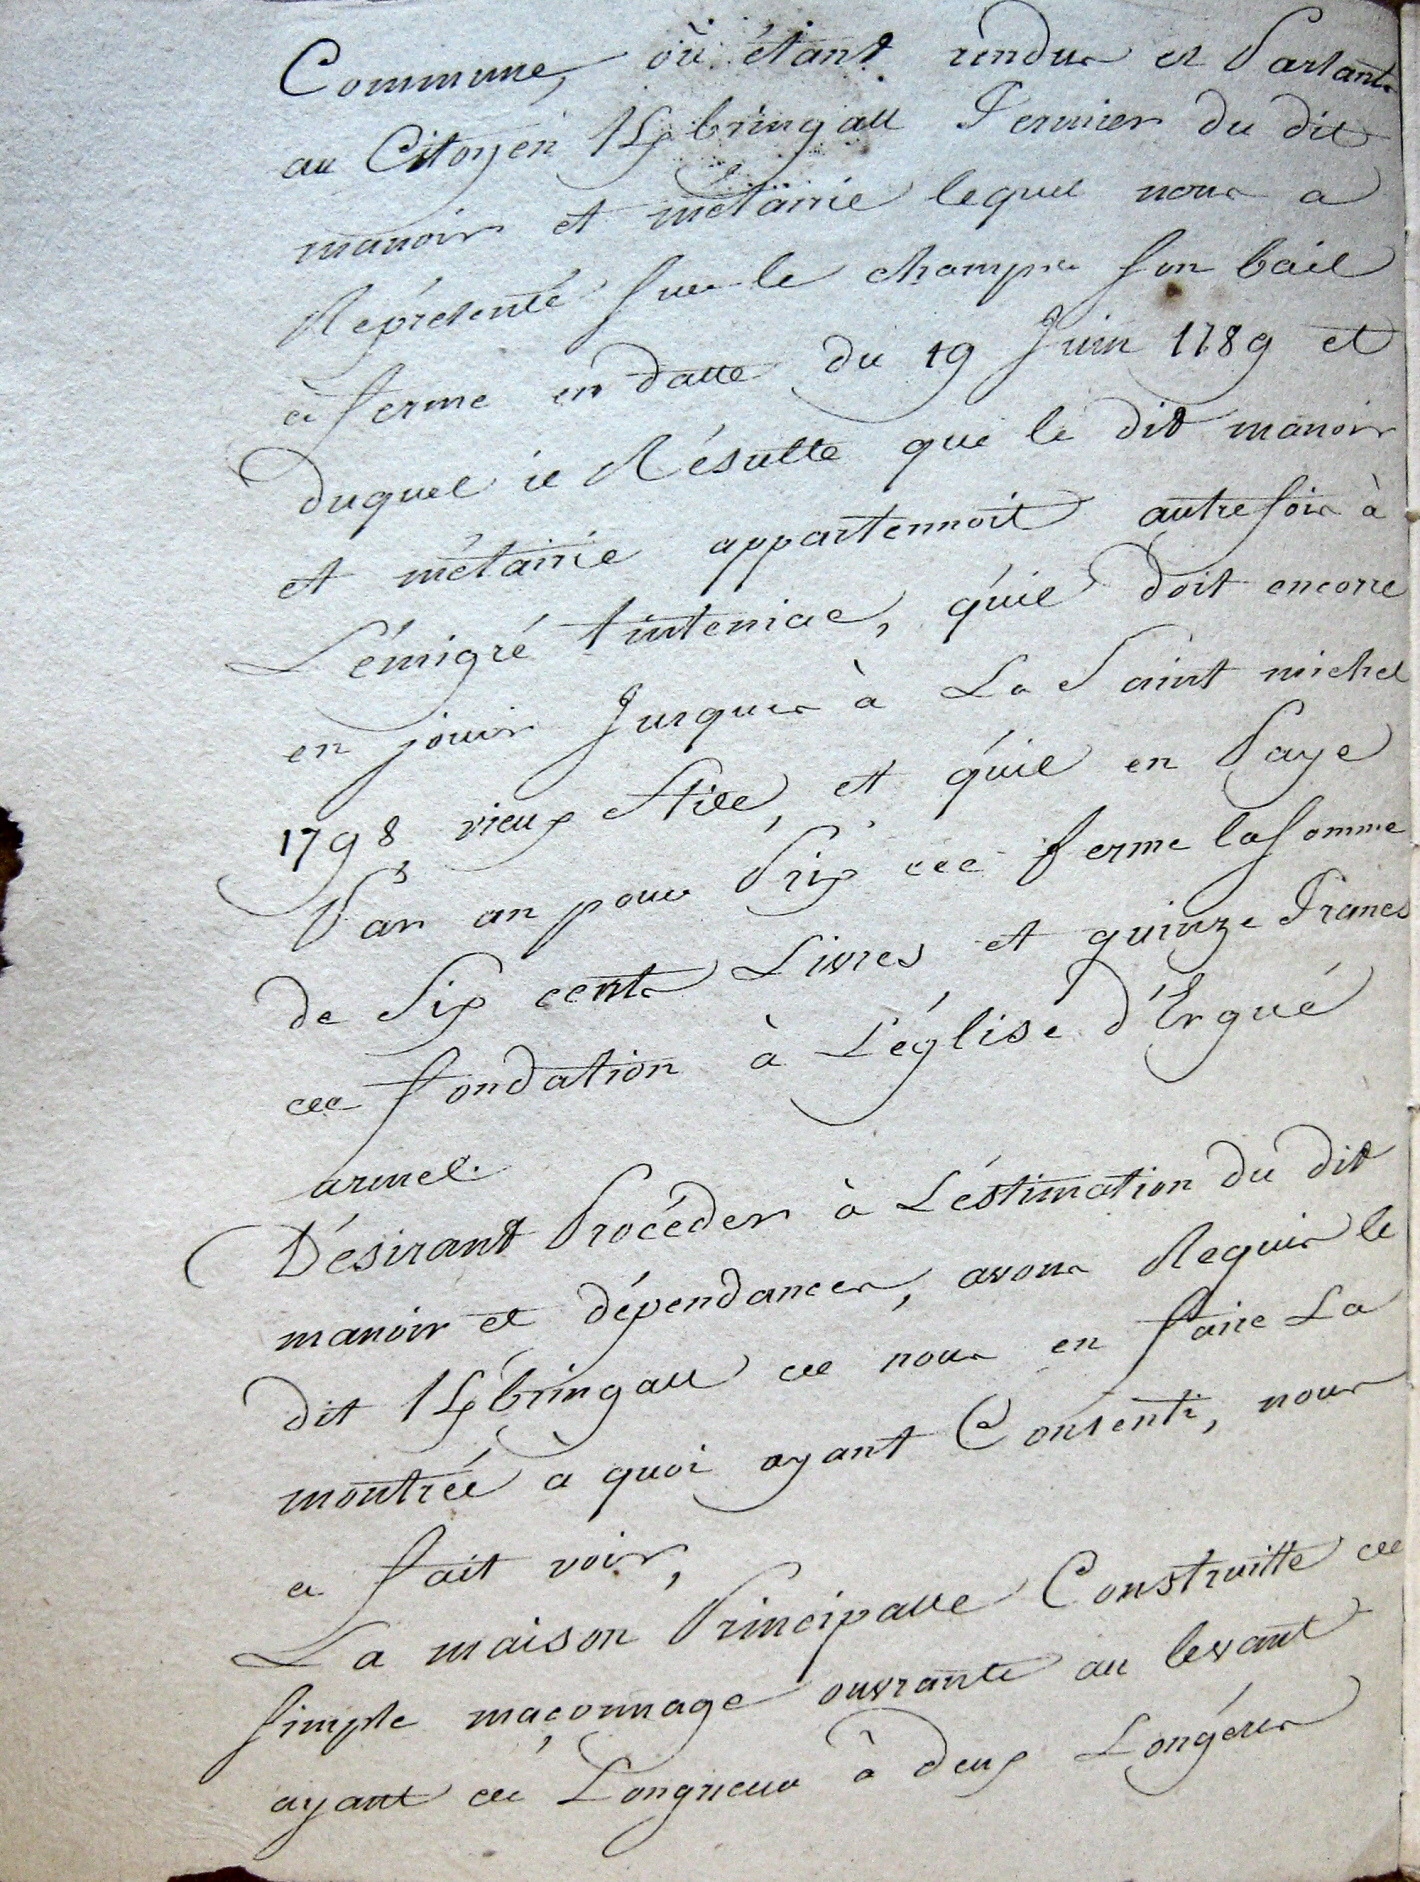 Commune, où étant rendus et Parlant
au Citoyen Kbringall Fermier du dit
manoir et métairie lequel nous a
Réprésenté sur le champs son bail
à ferme en datte du 19 Juin 1789 et
duquel il Résulte que le dit manoir
et métairie appartennoit autrefois à
L'émigré tinteniac, qu'il doit encorre
en jouir Jusques à La Saint michel
1798 vieux Stile, et qu'il en Paye
Par an pour Prix de ferme la somme
de Six cents Livres et quinze Francs
de fondation à L'église d'Ergué
armel.
Désirant Procéder à L'éstimation du dit
manoir et dépendances, avons Requis le
dit Kbringall de nous en faire La
montrée à quoi ayant Consenti, nous
a fait voir,
La maison Principalle Construitte de
simple maçonnage ouvrante au levant
ayant de Longueur à deux Longéres